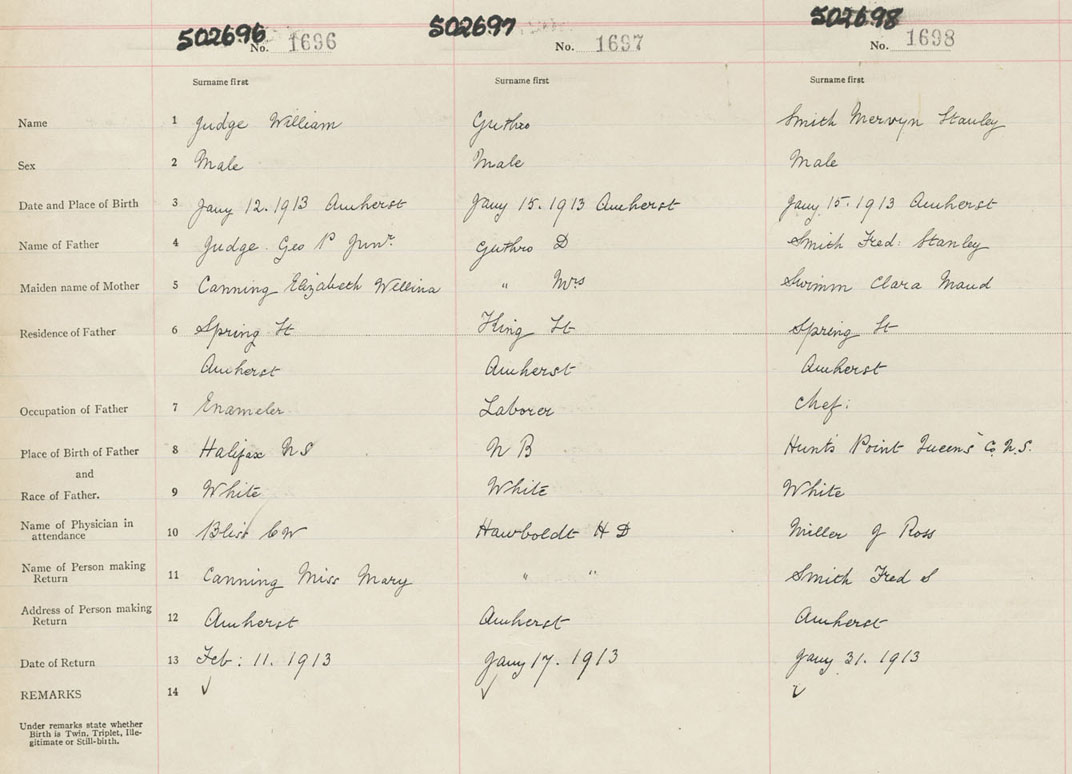 502696 502697 502698
No. 1696 No. 1697 No. 1698
Surname first Surname first Surname first
Name 1 Judge William Guthro Smith Mervyn Stanley
Sex 2 Male Male Male
Date and Place of Birth 3 Jany 12. 1913 Amherst Jany 15. 1913 Amherst Jany 15. 1913 Amherst
Name of Father 4 Judge Geo P Junr Guthro D Smith Fred: Stanley
Maiden name of Mother 5 Canning Elizabeth Wellina " Mrs Swimm Clara Maud
Residence of Father 6 Spring St King St Spring St
Amherst Amherst Amherst
Occupation of Father 7 Enameler Laborer Chef:
Place of Birth of Father 8 Halifax NS N B Hunts Point Queens Co N.S.
and
Race of Father. 9 White White White
Name of Physician in
attendance 10 Bliss CW Hawboldt H D Miller J Ross
Name of Person making
Return 11 Canning Miss Mary " " Smith Fred S
Address of Person making
Return 12 Amherst Amherst Amherst
Date of Return 13 Feb: 11. 1913 Jany 17. 1913 Jany 31. 1913
REMARKS 14 ✓ ✓ ✓
Under remarks state whether
Birth is Twin, Triplet, Ille-
gitimate or Still-birth.